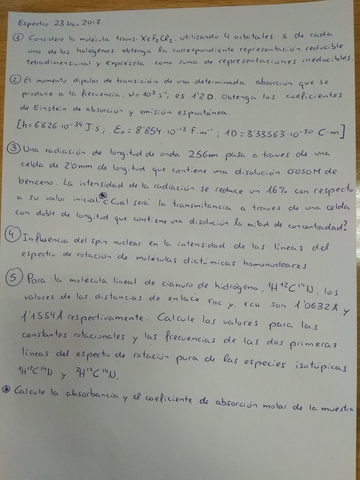 Espectro 23 Nov 2018
① Considere la molécula trans-XeF₂Cl₂, utilizando 4 orbitales s de cada
uno de los halógenos obtenga la correspondiente representación reducible
tetradimensional y expresela como suma de representaciones irreducibles.
② El momento dipolar de transición de una determinada absorción que se
produce a la frecuencia, es 1'2D. Obtenga los coeficientes
de Einstein de absorción y emisión espontánea.
[h=6'626·10⁻³⁴ J·s; E₀= 8'854·10⁻¹² F·m⁻¹; 1D = 3'33563·10⁻³⁰ C·m]
③ Una radiación de longitud de onda 256nm pasa a traves de una
celda de 2'0mm de longitud que contiene una disolución 0'050M de
benceno. La intensidad de la radiación se reduce un 16% con respecto
a su valor inicial ¿Cual será la transmitancia a traves de una celda
con doble de longitud que contiene una disolución la mitad de concentrada?
④ Influencia del spin nuclear en la intensidad de las líneas del
espectro de rotación de moléculas diatómicas homonucleares.
⑤ Para la molécula lineal de cianuro de hidrógeno, ¹H¹²C¹⁴N, los
valores de las distancias de enlace rHC y rCN son 1'0632Å y
1'1554Å respectivamente. Calcule los valores para las
constantes rotacionales y las frecuencias de las dos primeras
líneas del espectro de rotación pura de las especies isotópicas
¹H¹²C¹⁴N y ²H¹²C¹⁴N.
Calcule la absorbancia y el coeficiente de absorción molar de la muestra